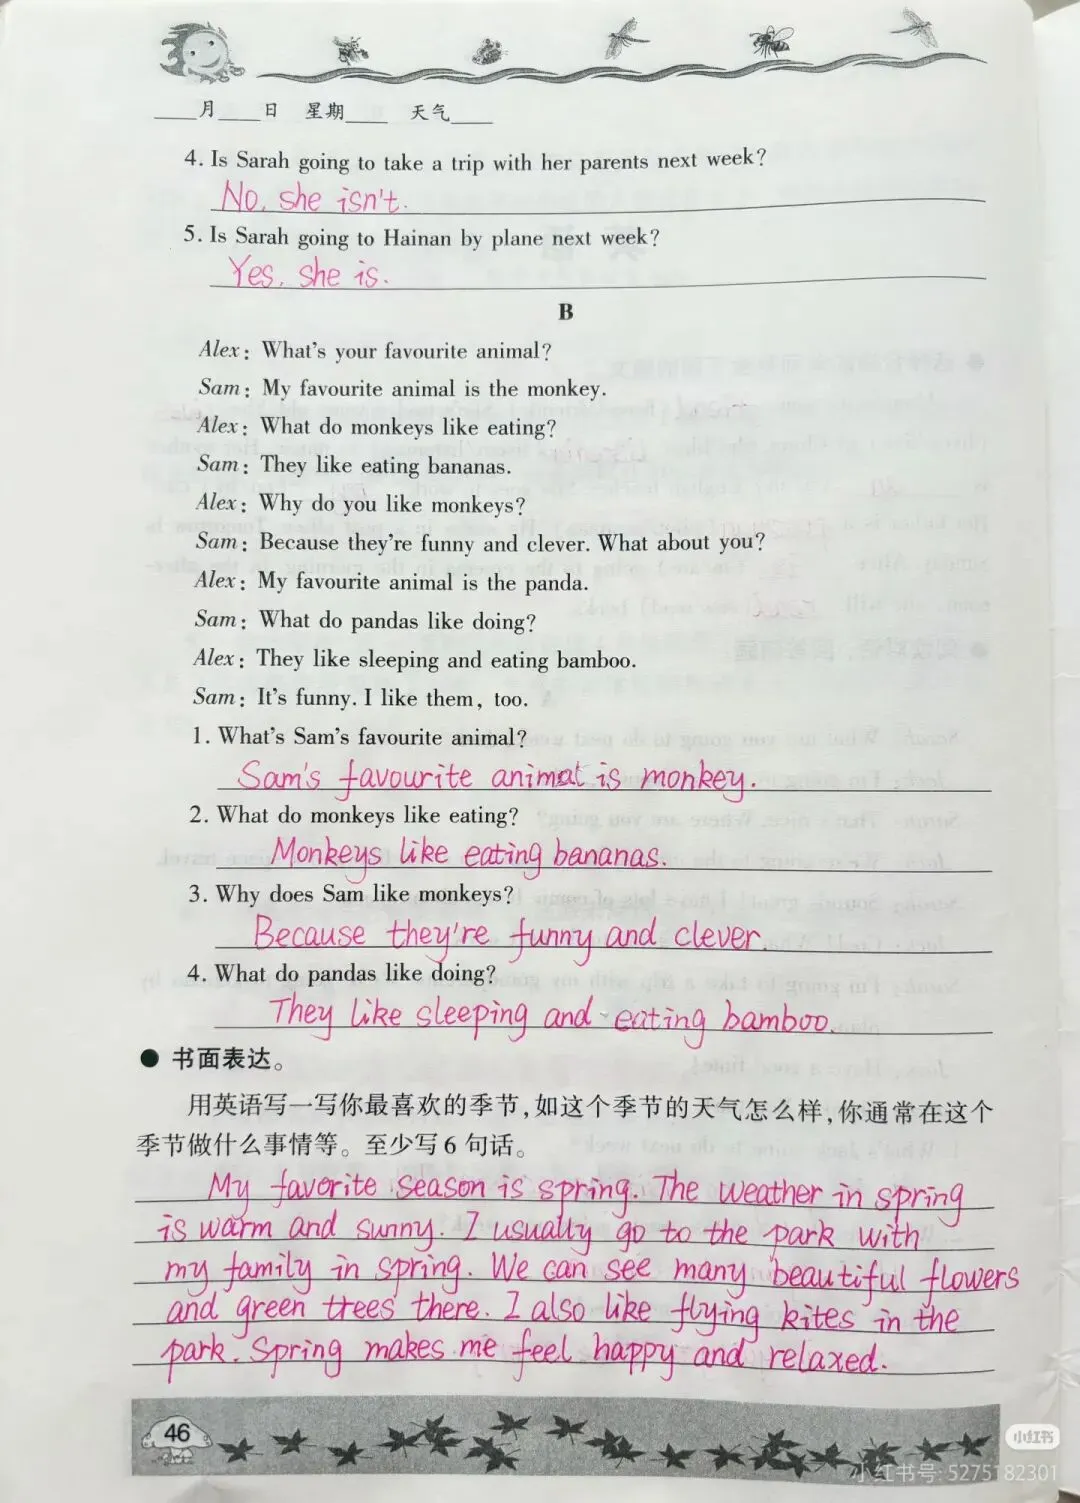 ____月____日 星期____ 天气____
4. Is Sarah going to take a trip with her parents next week?
No, she isn't.
5. Is Sarah going to Hainan by plane next week?
Yes, she is.
B
Alex: What's your favourite animal?
Sam: My favourite animal is the monkey.
Alex: What do monkeys like eating?
Sam: They like eating bananas.
Alex: Why do you like monkeys?
Sam: Because they're funny and clever. What about you?
Alex: My favourite animal is the panda.
Sam: What do pandas like doing?
Alex: They like sleeping and eating bamboo.
Sam: It's funny. I like them, too.
1. What's Sam's favourite animal?
Sam's favourite animal is monkey.
2. What do monkeys like eating?
Monkeys like eating bananas.
3. Why does Sam like monkeys?
Because they're funny and clever.
4. What do pandas like doing?
They like sleeping and eating bamboo.
● 书面表达。
用英语写一写你最喜欢的季节,如这个季节的天气怎么样,你通常在这个
季节做什么事情等。至少写6句话。
My favorite season is spring. The weather in spring
is warm and sunny. I usually go to the park with
my family in spring. We can see many beautiful flowers
and green trees there. I also like flying kites in the
park. Spring makes me feel happy and relaxed.
46
小红书
小红书号: 5275182301